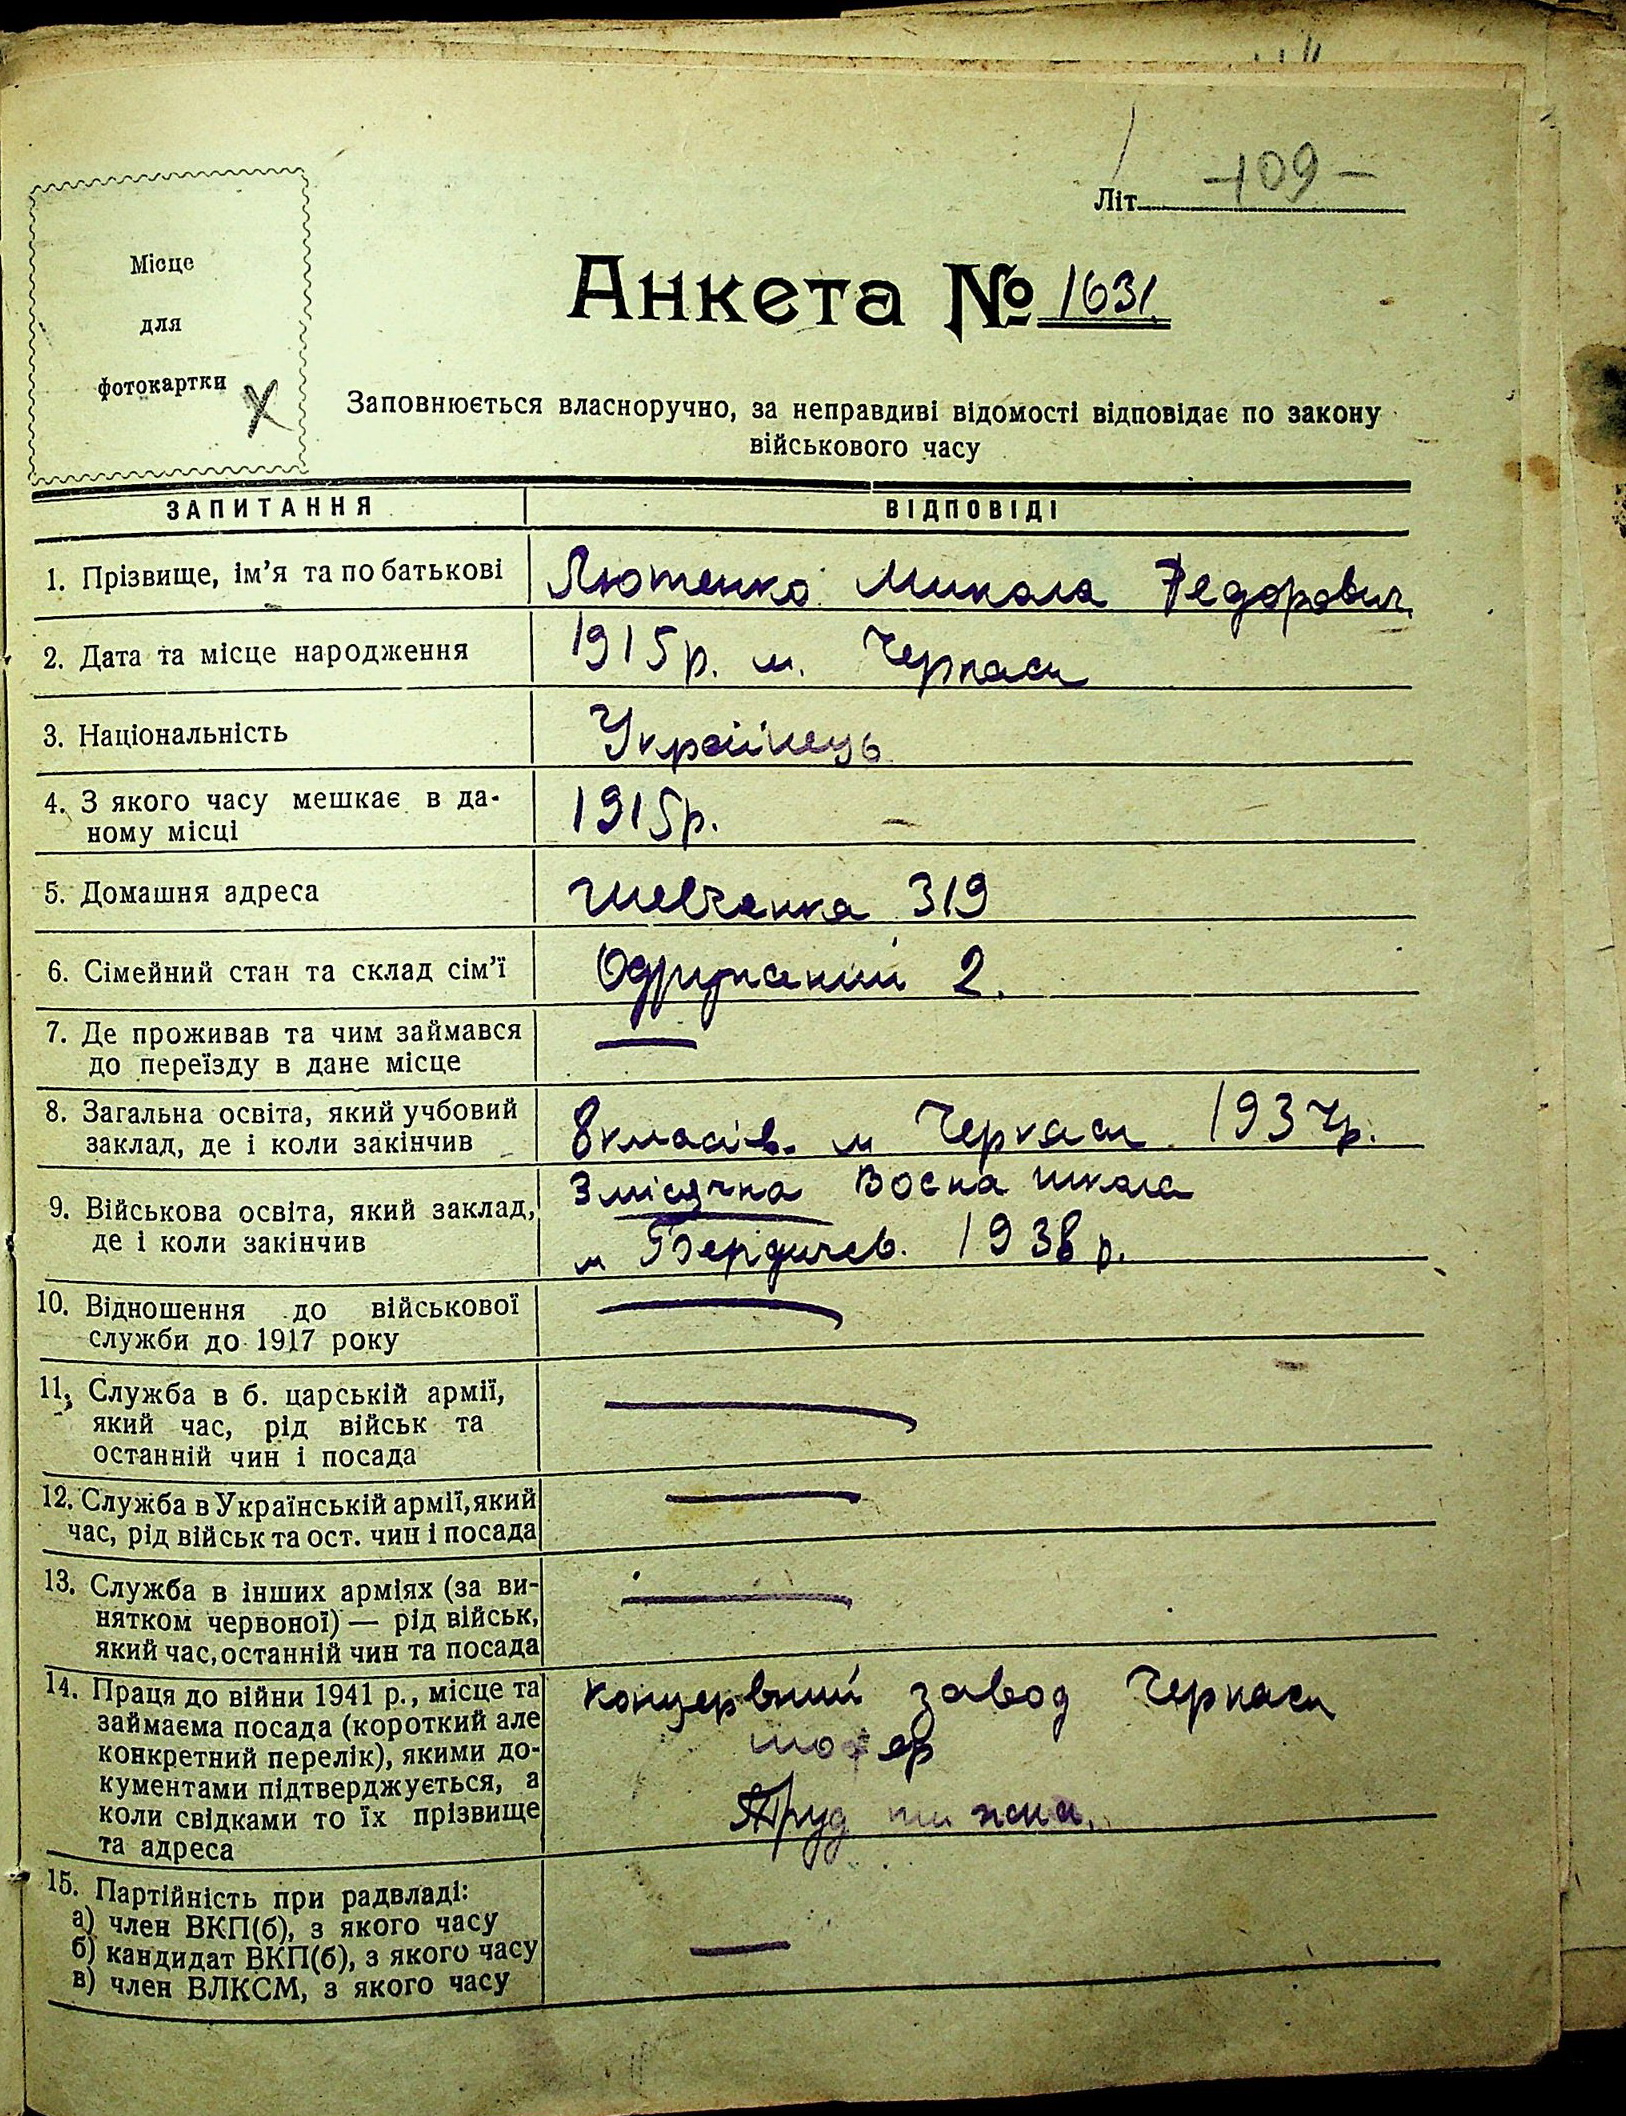 -109-
Літ.
Місце
для
фотокартки
Анкета № 1631.
Заповнюється власноручно, за неправдиві відомості відповідає по закону
військового часу
ЗАПИТАННЯ
ВІДПОВІДІ
1. Прізвище, ім'я та по батькові
Лютенко Микола Федорович
2. Дата та місце народження
1915р. м. Черкаси
3. Національність
Українець
4. З якого часу мешкає в да-
ному місці
1915р.
5. Домашня адреса
Шевченка 319
6. Сімейний стан та склад сім'ї
Одружений 2.
7. Де проживав та чим займався
до переїзду в дане місце
—
8. Загальна освіта, який учбовий
заклад, де і коли закінчив
8 класів. м Черкаси 1934р.
9. Військова освіта, який заклад,
де і коли закінчив
3 місячна Воєна школа
м Бердичев. 1938 р.
10. Відношення до військової
служби до 1917 року
—
11. Служба в б. царській армії,
який час, рід військ та
останній чин і посада
—
12. Служба в Українській армії, який
час, рід військ та ост. чин і посада
—
13. Служба в інших арміях (за ви-
нятком червоної) — рід військ,
який час, останній чин та посада
—
14. Праця до війни 1941 р., місце та
займаєма посада (короткий але
конкретний перелік), якими до-
кументами підтверджується, а
коли свідками то їх прізвище
та адреса
концервний завод Черкаси
шофер
Труд
15. Партійність при радвладі:
а) член ВКП(б), з якого часу
б) кандидат ВКП(б), з якого часу
в) член ВЛКСМ, з якого часу
—